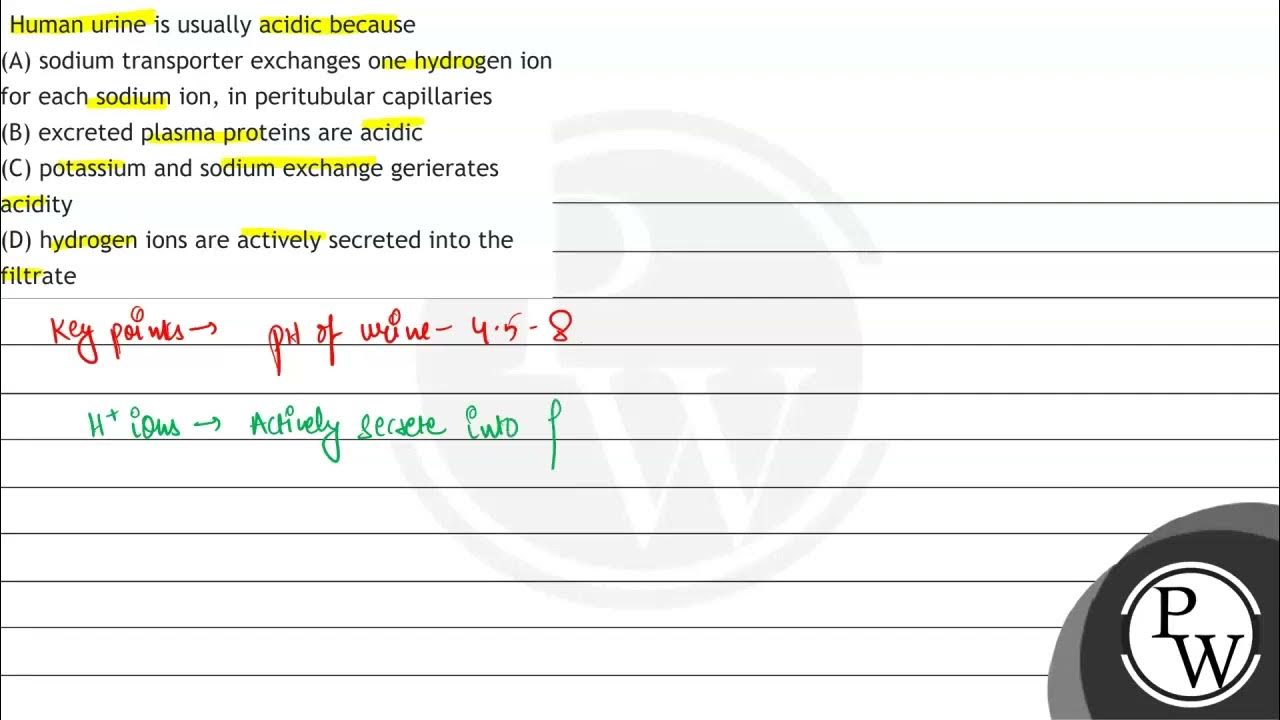 Human urine is usually acidic because
(A) sodium transporter exchanges one hydrogen ion
for each sodium ion, in peritubular capillaries
(B) excreted plasma proteins are acidic
(C) potassium and sodium exchange gerierates
acidity
(D) hydrogen ions are actively secreted into the
filtrate
Key points → pH of urine - 4.5 - 8
H+ ions → Actively secrete into f
P
W
P
W